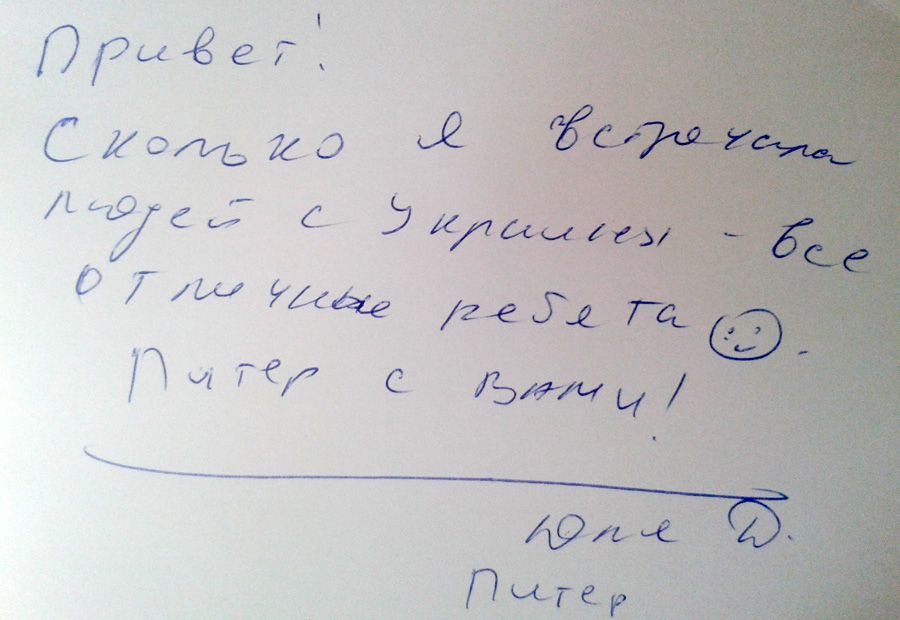 Привет!
Сколько я встречала
людей с Украины - все
отличные ребята ☺.
Питер с вами!
Юля Д.
Питер